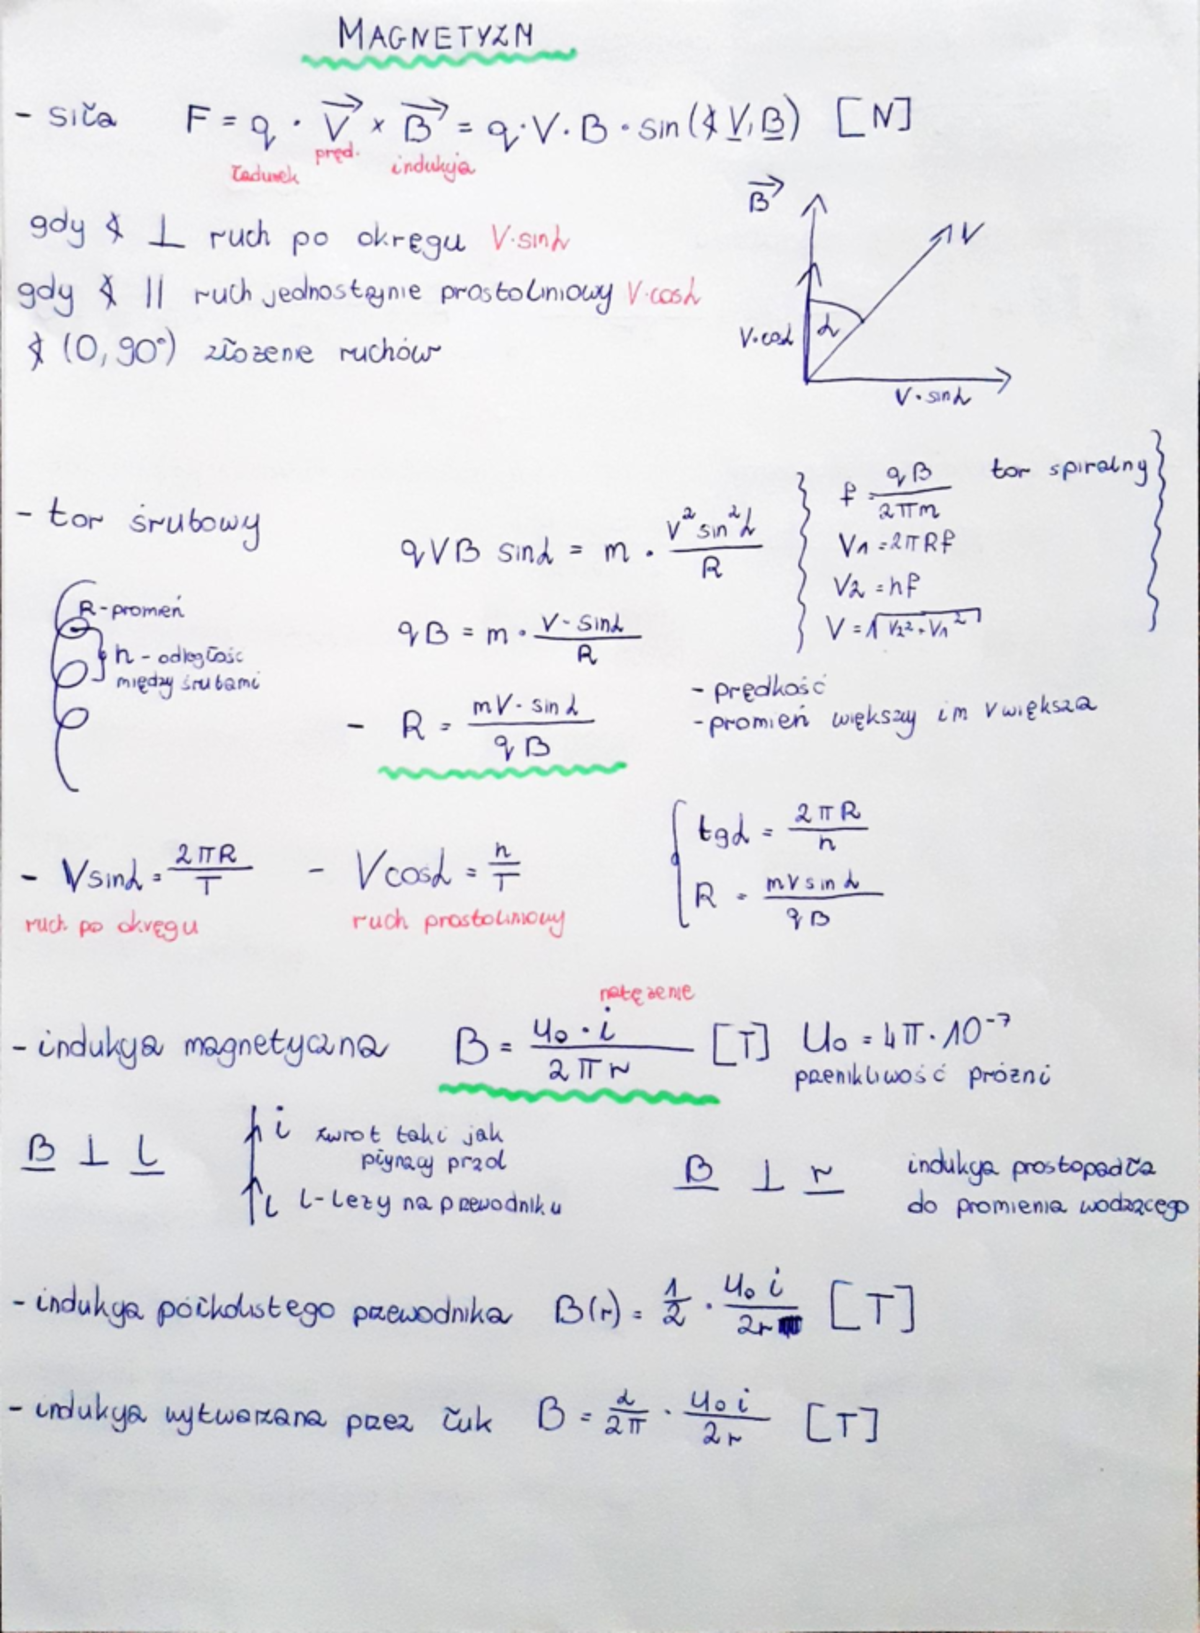 MAGNETYZM
- siła F = q · V × B = q · V · B · sin(∢ V, B) [N]
ładunek pręd. indukcja
gdy ∢ ⊥ ruch po okręgu V·sinα
gdy ∢ || ruch jednostajnie prostoliniowy V·cosα
∢ (0, 90°) złożenie ruchów
B
V
V·cosα
α
V·sinα
- tor śrubowy
qVB sinα = m · V² sin²α / R
qB = m · V·sinα / R
- R = mV·sinα / qB
R-promień
h - odległość
między śrubami
f = qB / 2πm tor spiralny
V1 = 2πRf
V2 = hf
V = √V2² + V1²
- prędkość
- promień większy im V większa
- Vsinα = 2πR / T
ruch po okręgu
- Vcosα = h / T
ruch prostoliniowy
tgα = 2πR / h
R = mVsinα / qB
natężenie
- indukcja magnetyczna B = u₀ · i / 2πr [T] u₀ = 4π · 10⁻⁷
przenikliwość próżni
B ⊥ l
i zwrot taki jak
płynący prąd
l l-leży na przewodniku
B ⊥ r
indukcja prostopadła
do promienia wodzącego
- indukcja półkolistego przewodnika B(r) = 1/2 · u₀ i / 2r [T]
- indukcja wytwarzana przez łuk B = α / 2π · u₀ i / 2r [T]